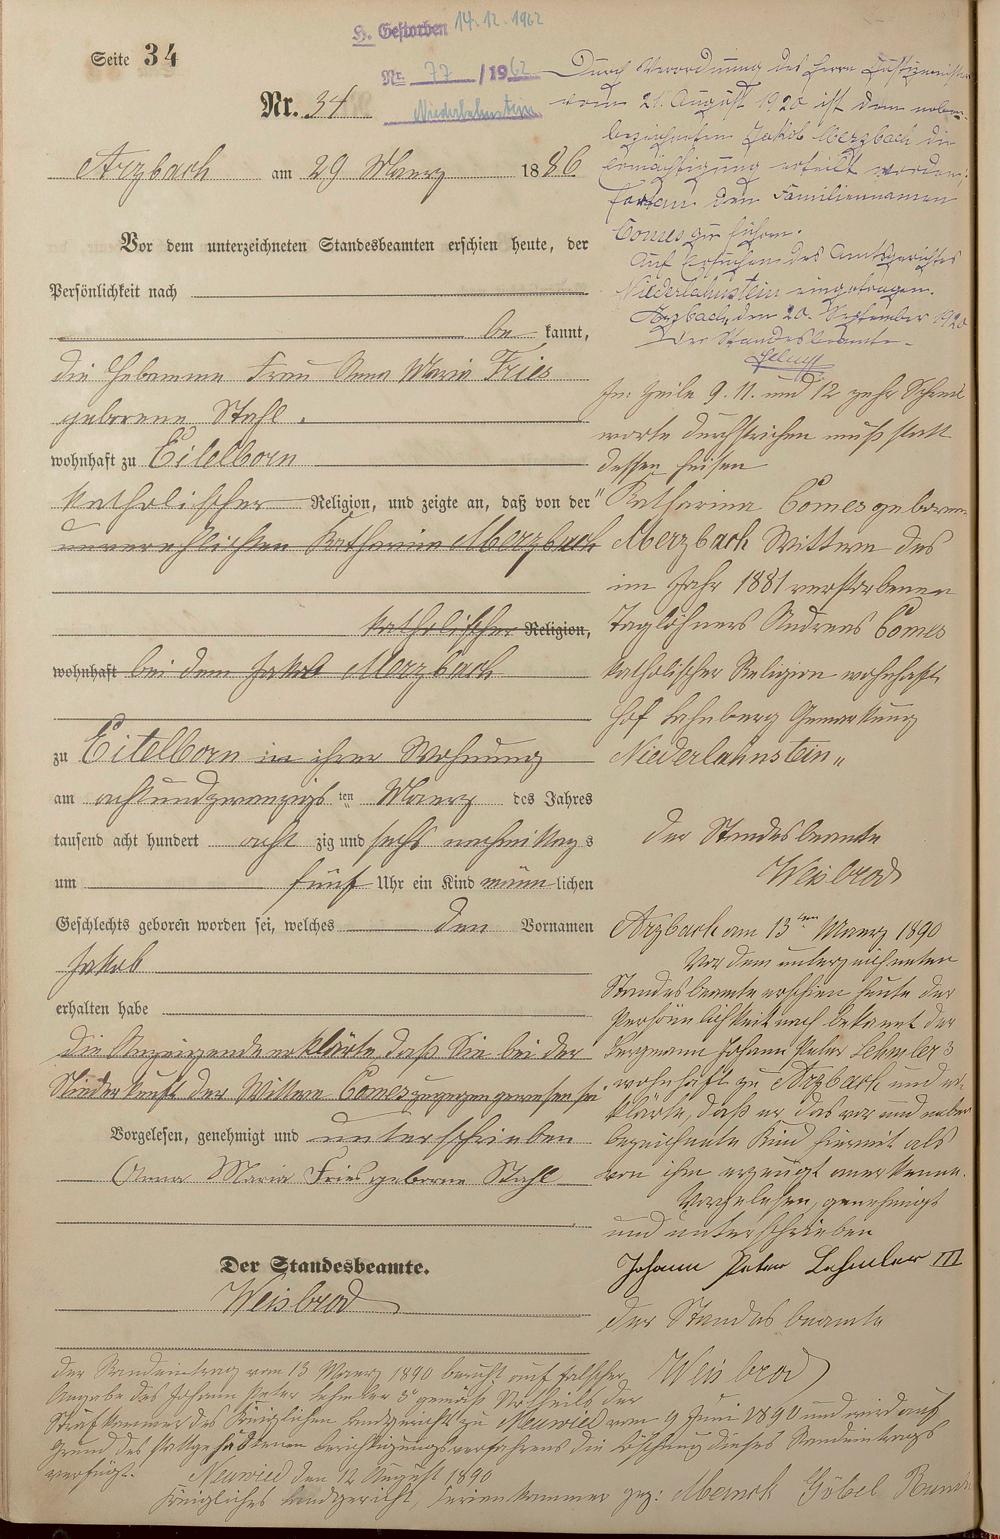 Seite 34
H. Gestorben 14.12.1962
Nr. 77 /1962
Niederlahnstein
Nr. 34
Arzbach am 29 Maerz 1886
Vor dem unterzeichneten Standesbeamten erschien heute, der
Persönlichkeit nach
be kannt,
die Hebamme Frau Anna Maria Fries
geborene Stahl.
wohnhaft zu Eitelborn
katholischer Religion, und zeigte an, daß von der
unverehlichten Katharina Merzbach
katholischer Religion,
wohnhaft bei dem Jakob Merzbach
zu Eitelborn in ihrer Wohnung
am achtundzwanzigsten Maerz des Jahres
tausend acht hundert acht zig und sechs nachmittags
um fünf Uhr ein Kind männlichen
Geschlechts geboren worden sei, welches den Vornamen
Jakob
erhalten habe
Die Anzeigende erklärte, daß Sie bei der
Niederkunft der Wittwe Comes zugegen gewesen sei
Vorgelesen, genehmigt und unterschrieben
Anna Maria Fries geborne Stahl
Der Standesbeamte.
Weisbrod
Durch Verordnung des Herrn Justizministers
vom 21. August 1920 ist dem neben-
bezeichneten Jakob Merzbach die
Ermächtigung erteilt worden,
fortan den Familiennamen
Comes zu führen.
Auf Ersuchen des Amtsgerichtes
Niederlahnstein eingetragen.
Arzbach, den 20. September 1920
Der Standesbeamte.
In Zeile 9. 11. und 12 zehn
worte durchstrichen muß statt
dessen heißen
"Katharina Comes geborene
Merzbach Wittwe des
im Jahr 1881 verstorbenen
Taglöhners Andreas Comes
katholischer Religion wohnhaft
Hof Lahnberg Gemarkung
Niederlahnstein"
Der Standesbeamte
Weisbrod
Arzbach am 13ten Maerz 1890
Vor dem unterzeichneten
Standesbeamte erschien heute der
Persönlichkeit nach bekannt der
Bergmann Johann Peter Lehmler 3
wohnhaft zu Arzbach und er-
klärte, daß er das vor und neben
bezeichnete Kind hiermit als
von ihm erzeugt anerkenne.
Vorgelesen, genehmigt
und unterschrieben
Johann Peter Lehmler III
Der Standesbeamte
Weisbrod
Der Randeintrag vom 13 Maerz 1890 beruht auf falscher
Angabe des Johann Peter Lehmler 3r gemäß Urtheils der
Strafkammer des Königlichen Landgerichts zu Neuwied vom 9 Juni 1890 und wird auf
Grund des stattgehabten Berichtigungsverfahrens die Löschung dieses Randeintrags
verfügt. Neuwied den 12 August 1890
Königliches Landgericht, Ferienkammer gez: Göbel